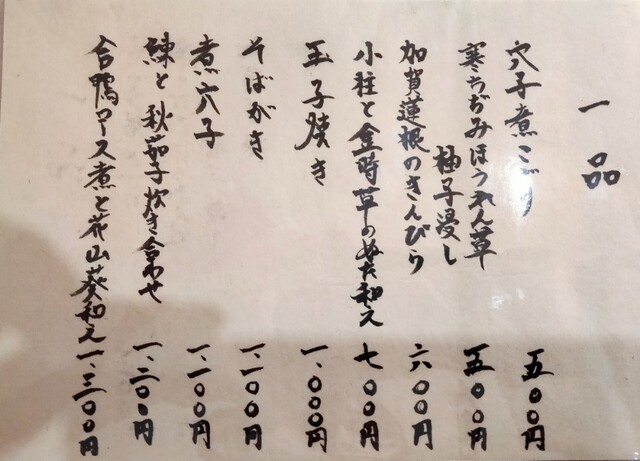 一品
穴子煮こごり 五〇〇円
寒ちぢみほうれん草 柚子浸し 五〇〇円
加賀蓮根のきんぴら 六〇〇円
小柱と金時草のぬた和え 七〇〇円
玉子焼き 一、〇〇〇円
そばがき 一、一〇〇円
煮穴子 一、一〇〇円
鰊と秋茄子炊き合わせ 一、二〇〇円
合鴨ロース煮と花山葵和え 一、三〇〇円